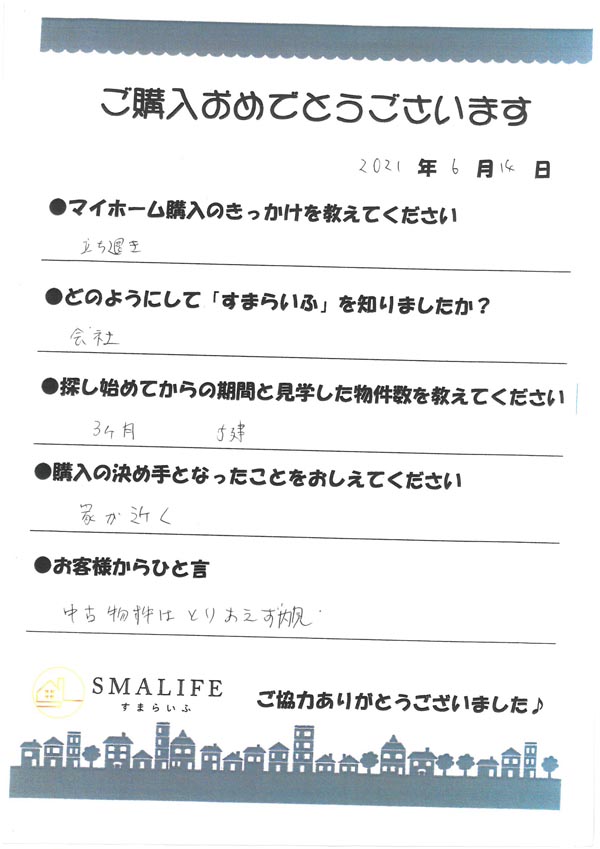 ご購入おめでとうございます
2021 年 6 月 14 日
●マイホーム購入のきっかけを教えてください
立ち退き
●どのようにして「すまらいふ」を知りましたか？
会社
●探し始めてからの期間と見学した物件数を教えてください
3ヶ月 5建
●購入の決め手となったことをおしえてください
家が近く
●お客様からひと言
中古物件はとりあえず内見
SMALIFE
すまらいふ
ご協力ありがとうございました♪